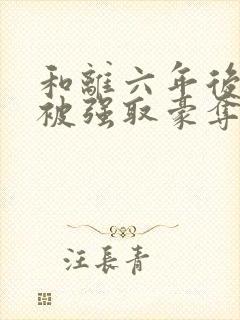 和離六年後
被强取豪奪
汪長青